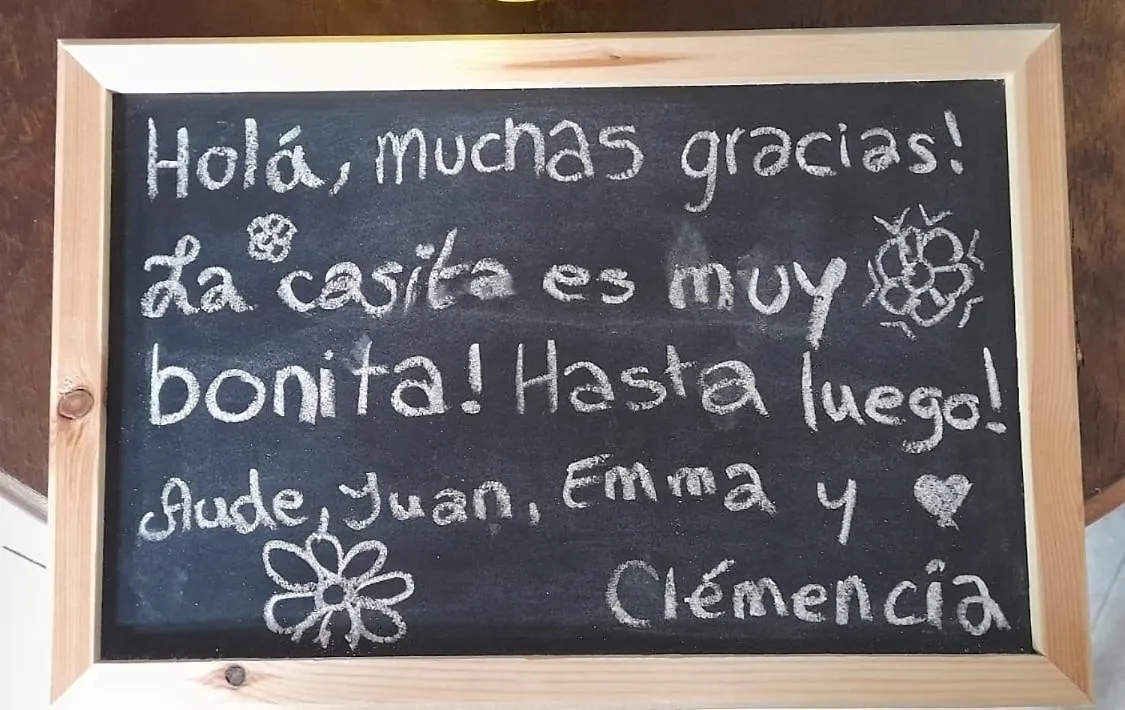 Holá, muchas gracias!
La casita es muy
bonita! Hasta luego!
Aude, Juan, Emma y
Clémencia